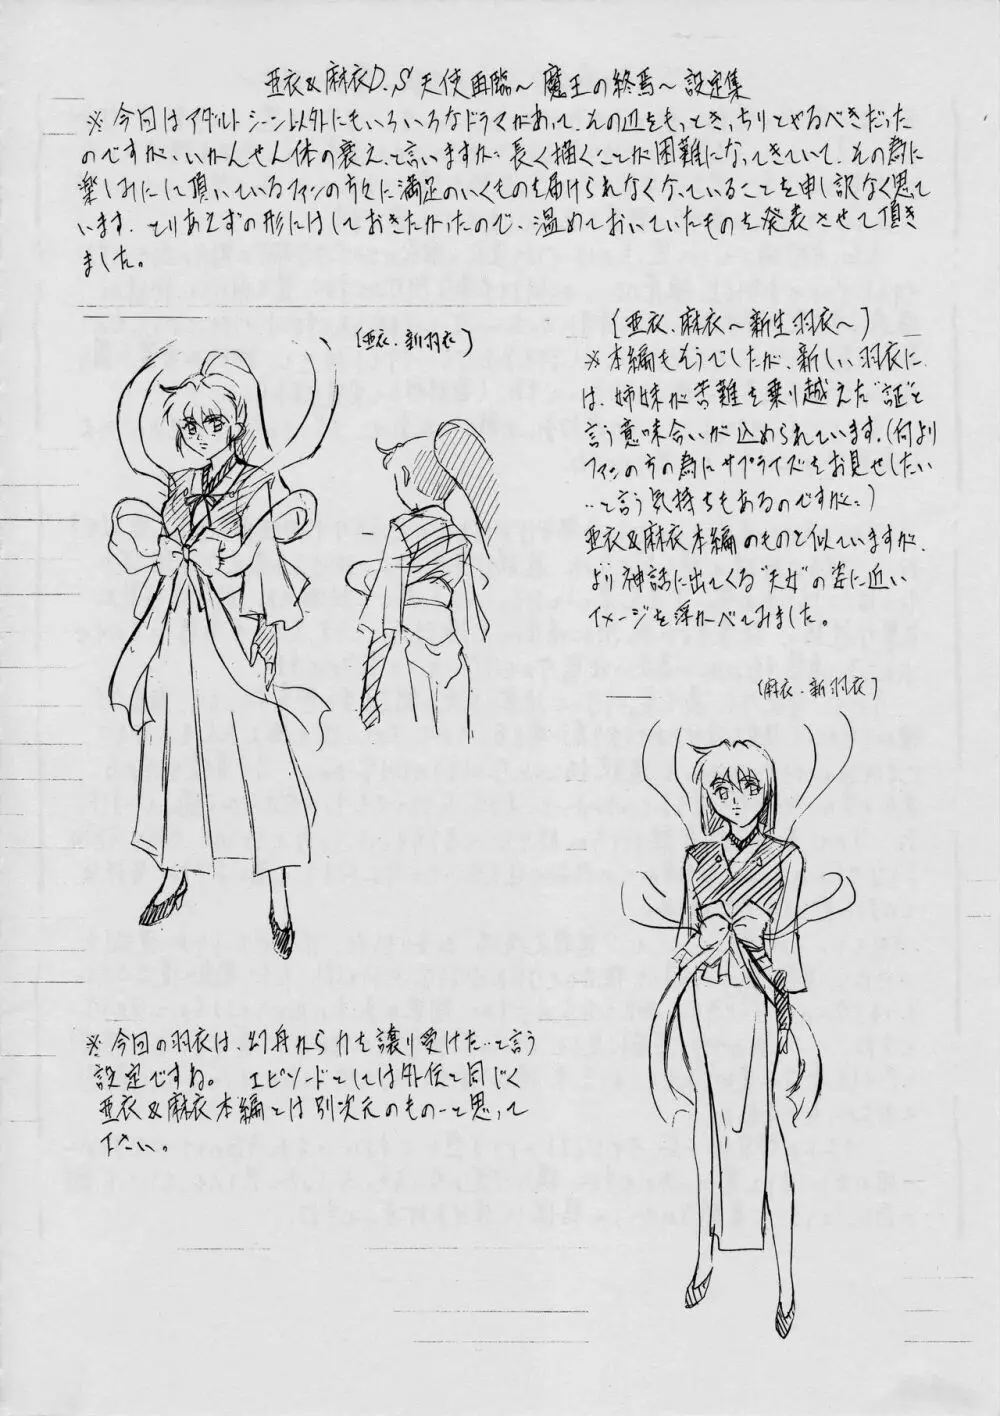 亜衣&麻衣D.S 天使再臨～魔王の終焉～設定集
※今回はアダルトシーン以外にもいろいろなドラマがあって、その辺をもっときっちりとやるべきだった
のですが、いかんせん体の衰え、と言いますか…長く描くことが困難になってきていて、その為に
楽しみにして頂いているファンの方々に満足のいくものを届けられなくなっていることを申し訳なく思って
います。とりあえずの形にはしておきたかったので、温めておいていたものを発表させて頂き
ました。
(亜衣・新羽衣)
(亜衣、麻衣～新生羽衣～)
※本編もそうでしたが、新しい羽衣に
は、姉妹が苦難を乗り越えた"証"と
言う意味合いが込められています。(何より
ファンの方の為にサプライズをお見せしたい
…と言う気持ちもあるのですが…)
亜衣&麻衣本編のものと似ていますが、
より神話に出てくる"天女"の姿に近い
イメージを浮かべてみました。
(麻衣・新羽衣)
※今回の羽衣は、幻舟から力を譲り受けた…と言う
設定ですね。 エピソードとしては外伝と同じく
亜衣&麻衣本編とは別次元のもの…と思って
下さい。